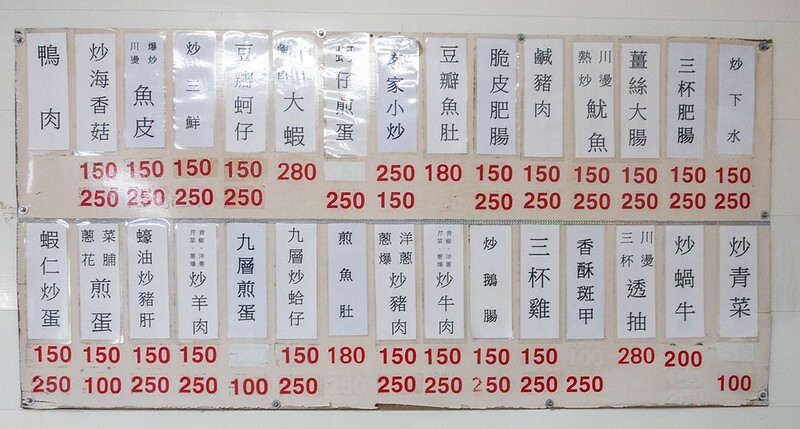 炒下水
150
250
三杯肥腸
150
250
薑絲大腸
150
250
川燙
熱炒
魷魚
150
250
鹹豬肉
150
250
脆皮肥腸
150
250
豆瓣魚肚
180
家小炒
250
150
仔煎蛋
250
大蝦
280
豆瓣蚵仔
150
250
炒三鮮
150
250
爆炒
川燙
魚皮
150
250
炒海香菇
150
250
鴨肉
炒青菜
100
炒蝸牛
200
川燙
三杯
透抽
280
香酥斑甲
250
三杯雞
150
250
炒鵝腸
150
250
青椒·洋蔥
芹菜·蔥爆
炒牛肉
150
250
洋蔥
蔥爆
炒豬肉
150
250
煎魚肚
180
九層炒蛤仔
150
250
九層煎蛋
100
青椒·洋蔥
芹菜·蔥爆
炒羊肉
150
250
蠔油炒豬肝
150
250
菜脯
蔥花
煎蛋
150
100
蝦仁炒蛋
150
250